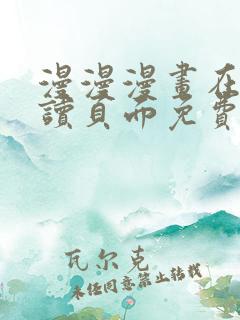 漫漫漫畫在
讀頁而免費
瓦尔克
未经同意禁止转载